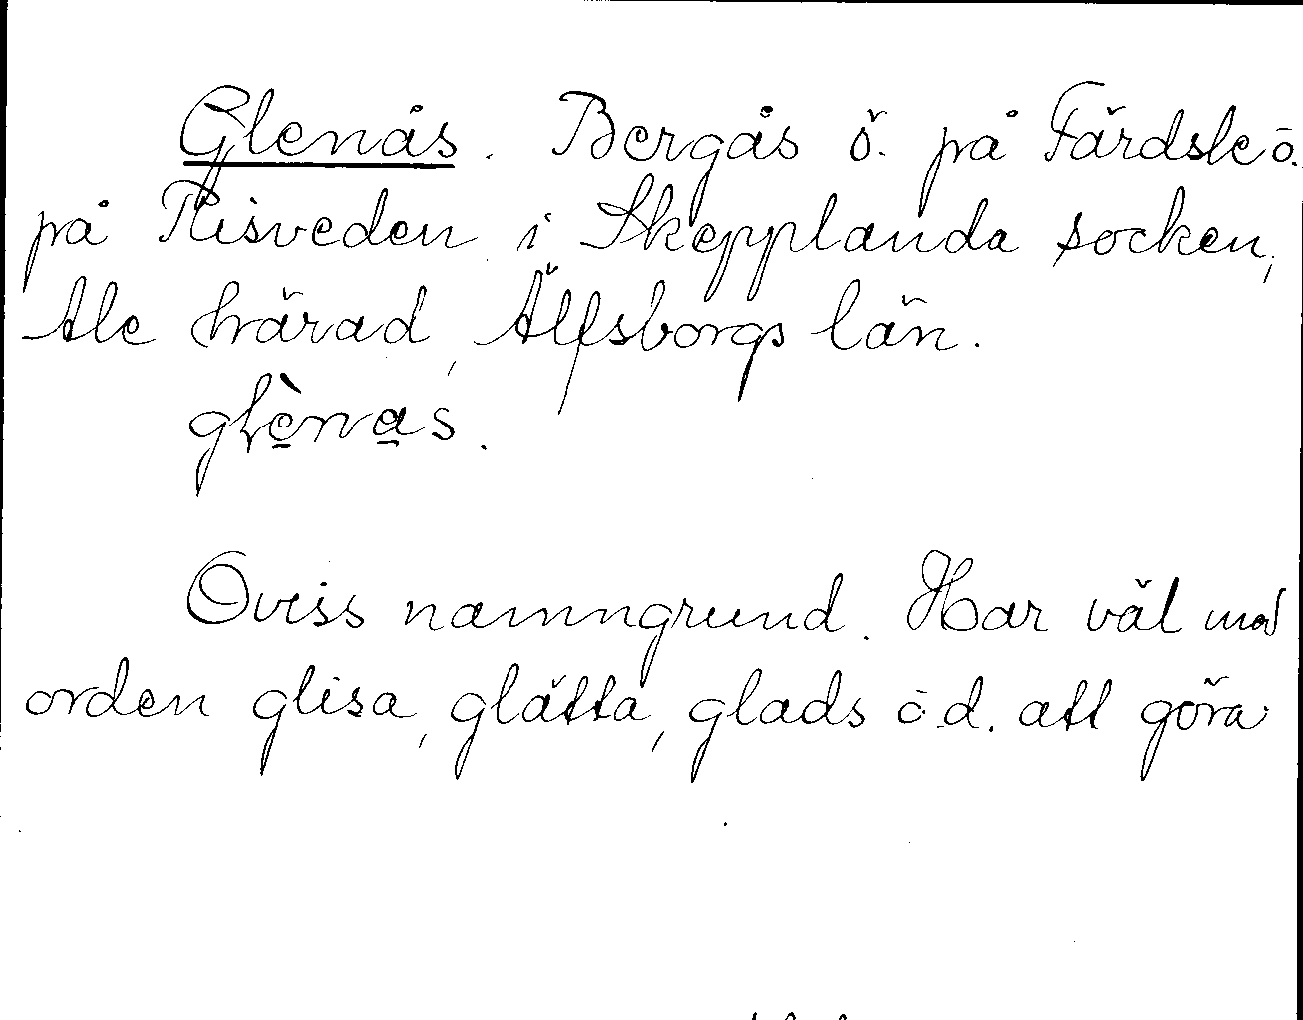 Glenås. Bergås ö. på Färdsle ö.
på Risveden i Skepplanda socken,
Ale härad, Älfsborgs län.
glènas.
Oviss namngrund. Har väl med
orden glisa, glätta, glads o.d. att göra